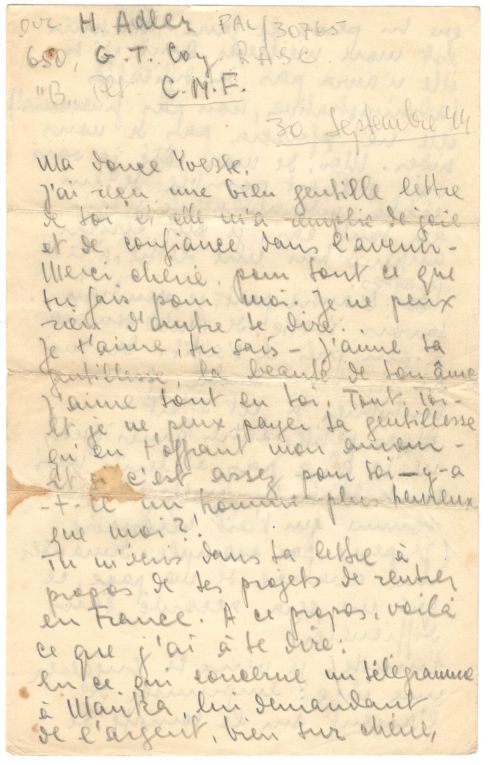 Dvr. H Adler PAL/30765
650, G. T. Coy R.A.S.C.
"B" Plt C.M.F.
30 Septembre 44
Ma douce Yvesse,
J'ai reçu une bien gentille lettre
de toi et elle m'a remplie de joie
et de confiance dans l'avenir -
Merci, chérie, pour tout ce que
tu fais pour moi. Je ne peux
rien d'autre te dire.
Je t'aime, tu sais - J'aime ta
gentillesse, la beauté de ton âme
J'aime tout en toi. Tout, toi -
et je ne peux payer ta gentillesse
qu'en t'offrant mon amour -
et si c'est assez pour toi - y-a
-t-il un homme plus heureux
que moi?!
Tu m'écris dans ta lettre à
propos de tes projets de rentrer
en France. A ce propos, voilà
ce que j'ai à te dire:
en ce qui concerne un télégramme
à Marika, lui demandant
de l'argent, bien sur chérie,